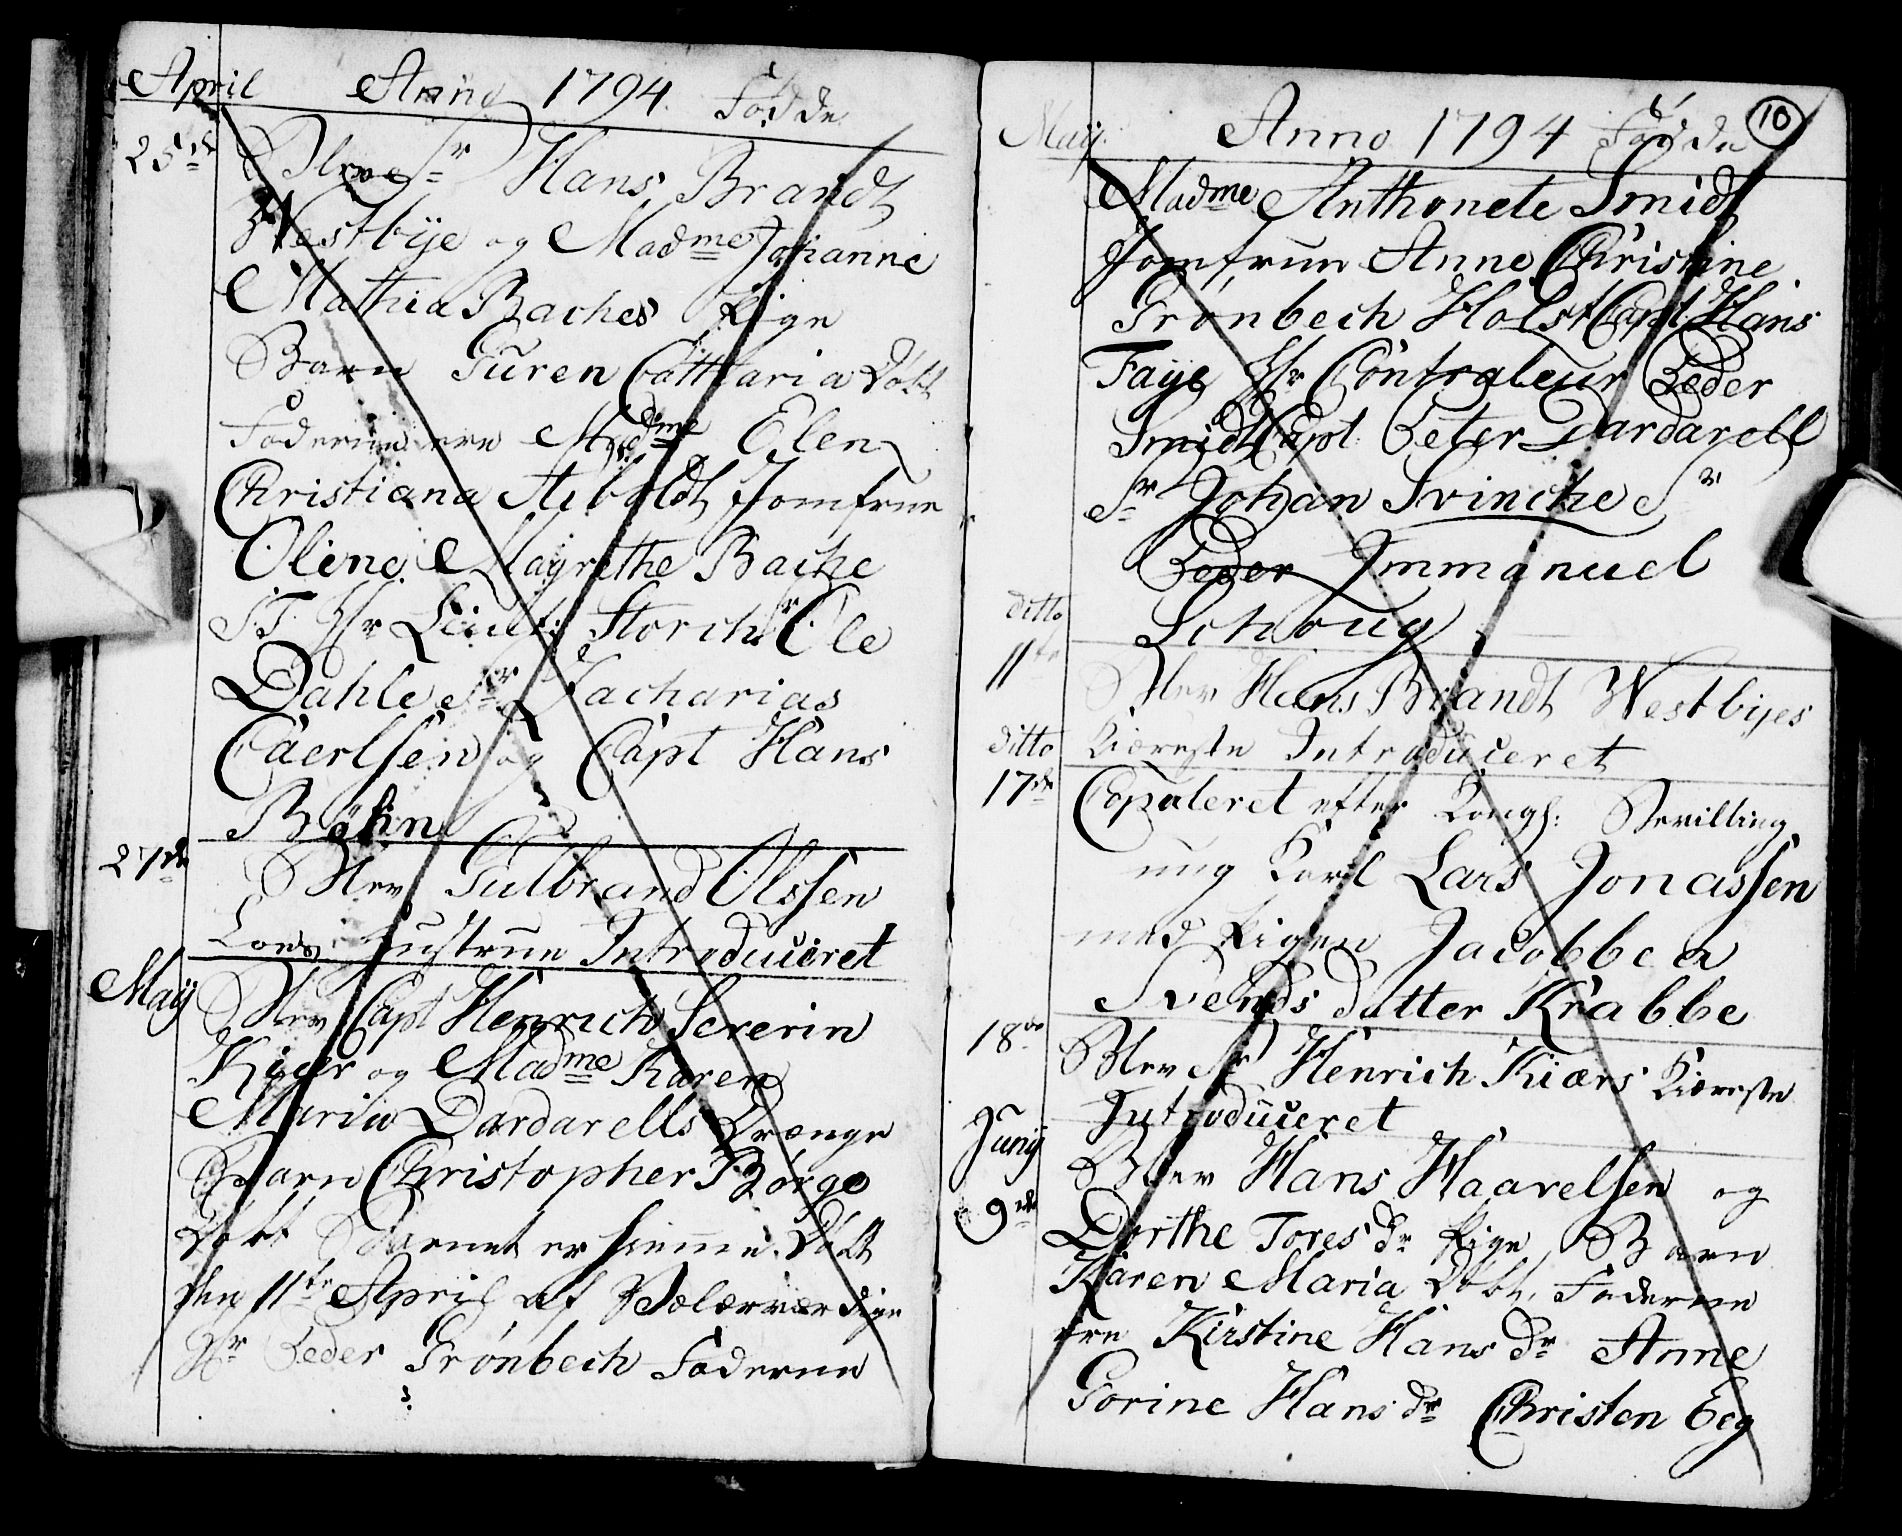 April Anno 1794 Födde
25de Blev Sr Hans Brandt
Westbye og Madme Johanne
Mathia Baches Pige
Barn Guren Cathharia Döbt
Fadderne ere Madme Elen
Christiana Siboldt Jomfrue
Oline Magrethe Bache
S.T. Hr Leiut: Storch Sr Ole
Dahle Sr Zacharias
Caerlsen og Capt Hans
Böhn
27de Blev Gulbrand Olssen
Hustrue Introduceret
Maij Blev Capt Henrich Sererin
Kiær og Madme Karen
Maria Dardarells Drænge
Barn Christopher Börge
Döbt Barnet er hiemme Döbt
den 11te April af Velærværdige
Hr Peder Grönbech Fadderne
10
Maij Anno 1794 Födde
Madme Anthonete Smidt
Jomfrun Anne Christine
Grönbech Holst Capt Hans
Faye Hr Contraleur Peder
Smidt Capt Peter Dardarell
Sr Johan Svincke Sr
Peder Immanuel
Schoug
ditto
11te Blev Hans Brandt Westbyes
Kiæreste Introduceret
ditto
17de Copuleret efter Kongl: Bevilling
ung Karl Lars Jonassen
med Pigen Jacobbea
Svends datter Krabbe
18de Blev Sr Henrich Kiærs Kiæreste
Introduceret
Junij
9de Blev Hans Haarelsen og
Dorthe Tores dr Pige Barn
Karen Maria Döbt, Fadderne
ere Kirstine Hans dr Anne
Gorine Hans dr Christen Eeg